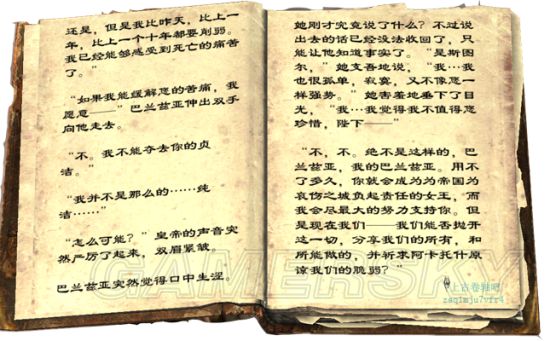 还是，但是我比昨天，比上一
年，比上一个十年都要削弱。
我已经能够感受到死亡的痛苦
了。”
“如果我能缓解您的苦痛，我
愿意——”巴兰兹亚伸出双手
向他走去。
“不。我不能夺去你的贞
洁。”
“我并不是那么的……纯
洁……”
“怎么可能？”皇帝的声音突
然严厉了起来，双眉紧皱。
巴兰兹亚突然觉得口中生涩。
她刚才究竟说了什么？不过说
出去的话已经没法收回了，只
能让他知道事实了。“是斯图
尔，”她支吾地说，“我…我
也很孤单，寂寞，又不像您一
样强势。”她害羞地垂下了目
光，“我…我觉得我不值得您
珍惜，陛下——”
“不，不。绝不是这样的，巴
兰兹亚，我的巴兰兹亚。用不
了多久，你就会成为为帝国为
哀伤之城负起责任的女王，而
我会尽最大的努力支持你。但
是现在我们——我们能否抛开
这一切，分享我们的所有，和
所能做的，并祈求阿卡托什原
谅我们的脆弱？”
GAMERSKY
上古卷轴吧
zaq1mju7vfr4